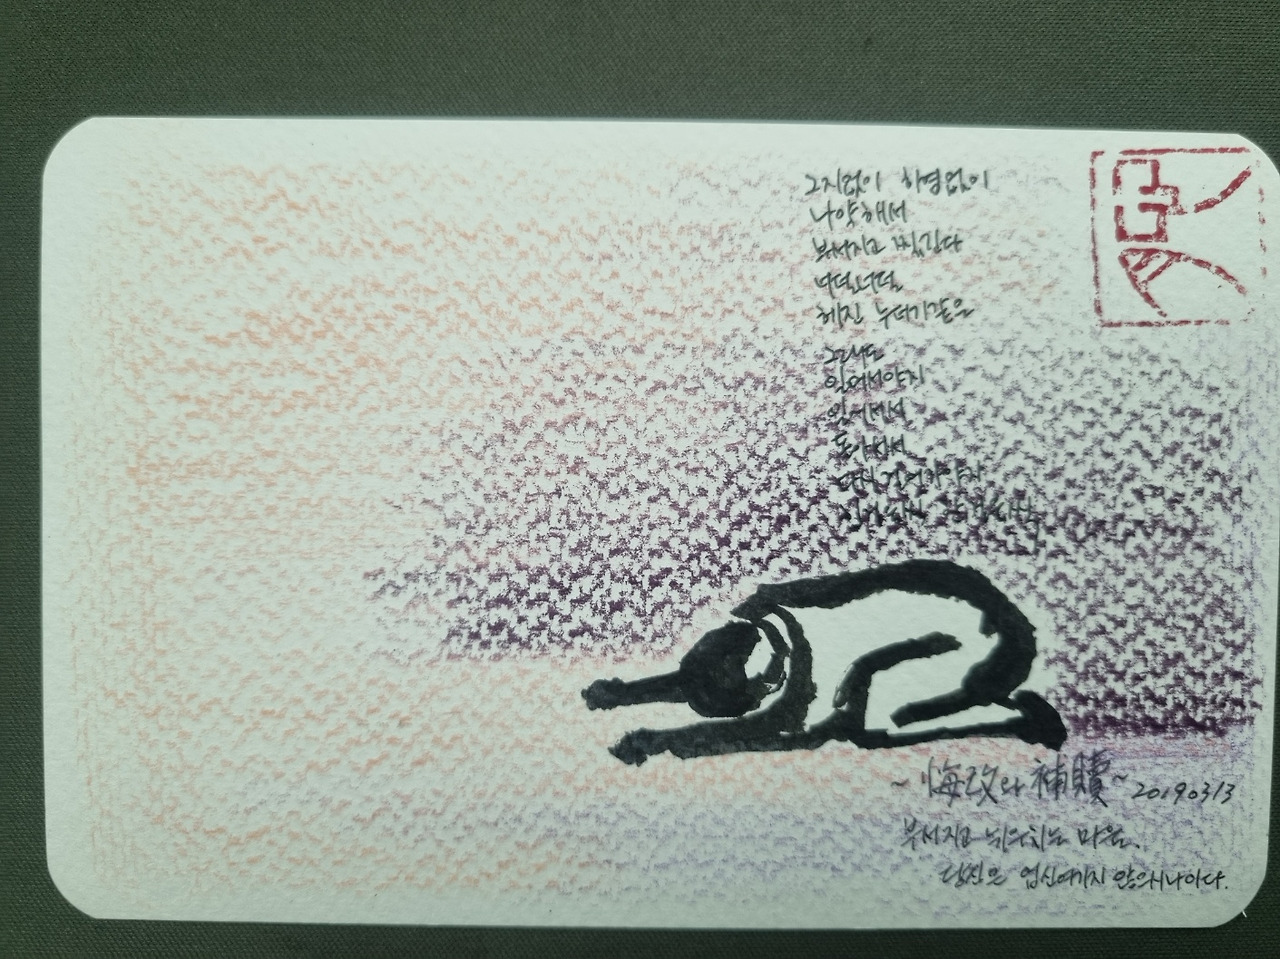 그지없이 하염없이
나약해서
부서지고 찢긴다
너덜너덜
헤진 누더기같은
그래도
일어서야지
일어서서
돌아서서
다시 걸어가야지
~悔改와 補贖~ 20190313
부서지고 뉘우치는 마음,
당신은 업신여기지 않으시나이다.